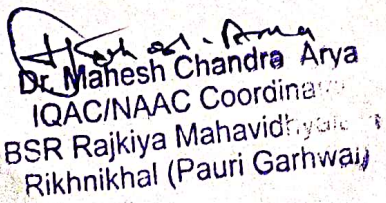 Dr. Mahesh Chandra Arya
IQAC/NAAC Coordina
BSR Rajkiya Mahavidhyal
Rikhnikhal (Pauri Garhwal)